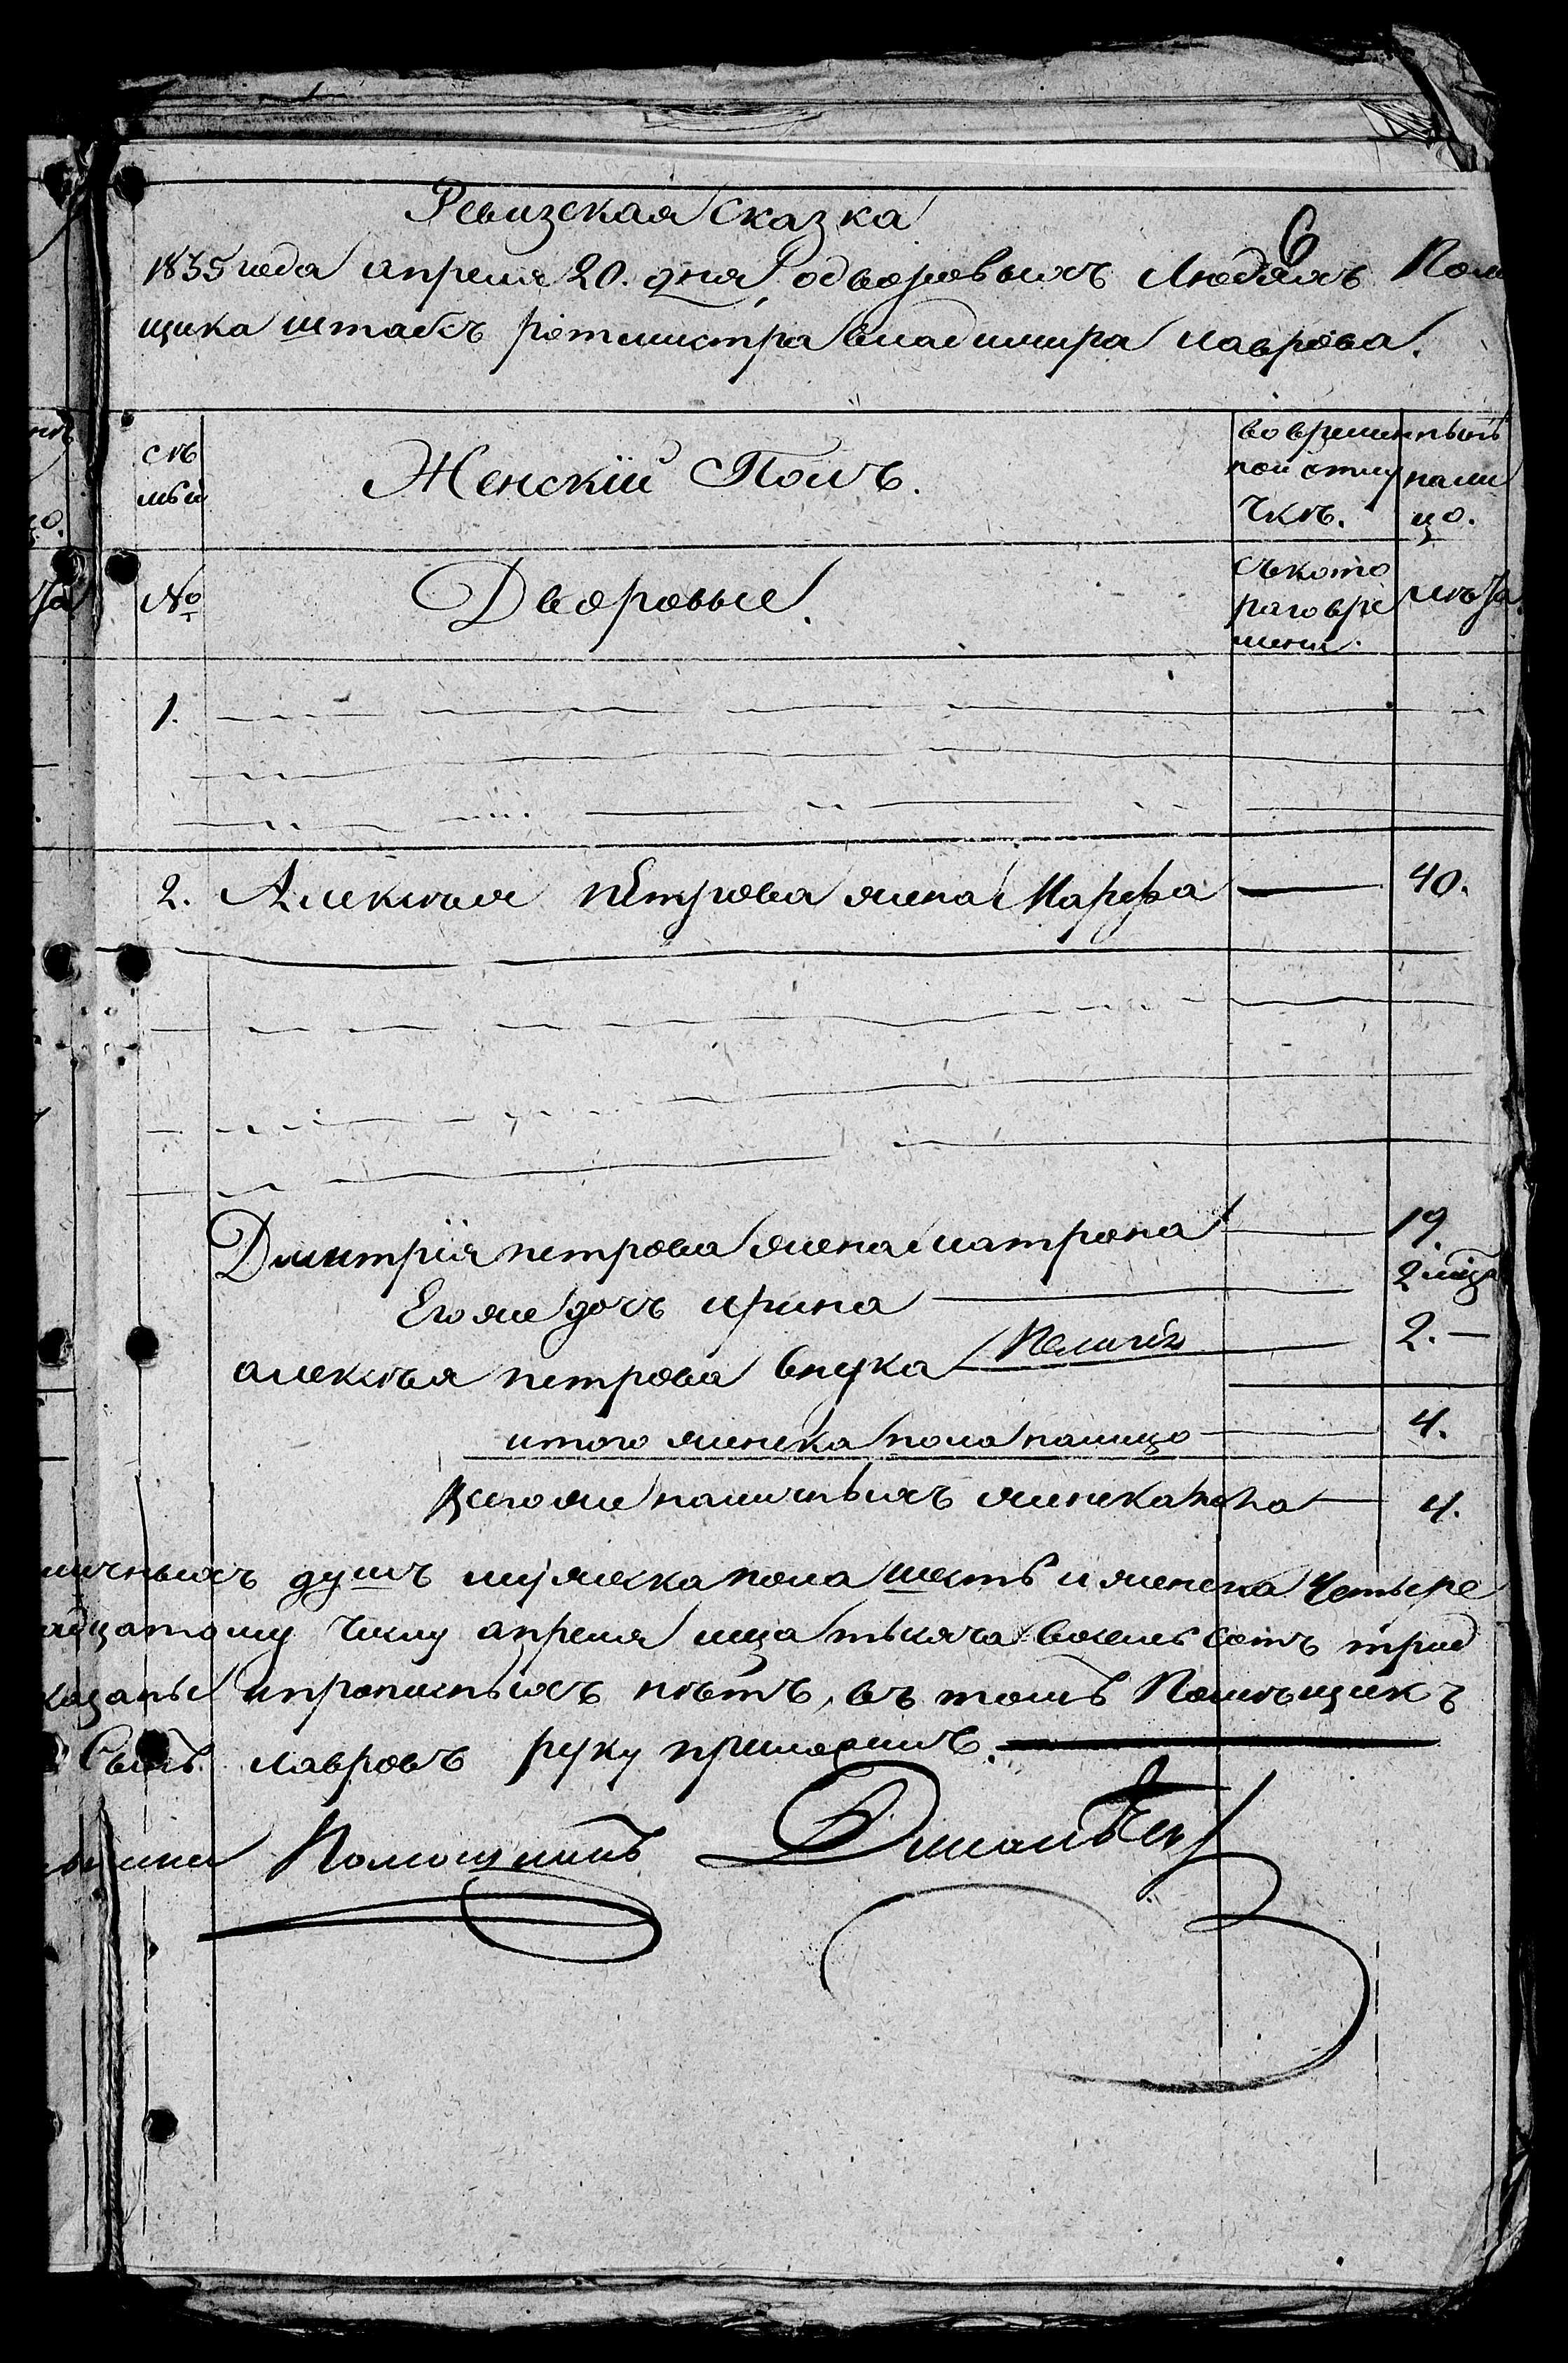 Ревизская Сказка
6
1835 года апреля 20. дня, одворовыхъ Людяхъ Поме
щика штабсъ ротмистра владимира лаврова.
семьи
Женскій Полъ.
во времянной отлучкѣ.
ныне налицо.
№
Дворовые.
съ котораго времени.
лѣта.
1.
2. Алексѣя петрова жена Марфа 40.
Дмитрія петрова жена матрона 19.
Его же дочь ирина 2 мца
алексѣя петрова внука Пелагія 2.
итого женска пола налицо 4.
Всего же наличныхъ женска пола 4.
личныхъ душъ мужеска пола шесть и женска четыре
адцатому числу апреля мца тысяча восемь сотъ трид
казаны и прописныхъ нѣтъ, въ томъ Помѣщикъ
Сынъ лавровъ руку приложилъ.